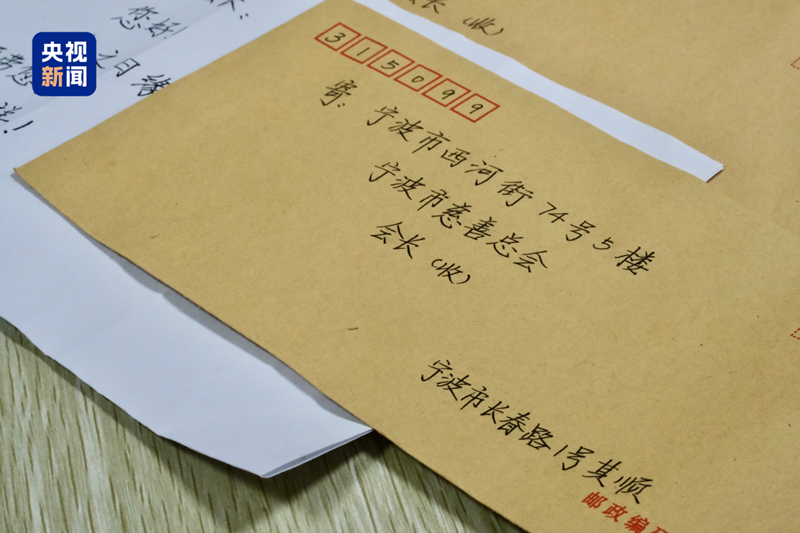 央视
新闻
您好!
会长（收）
315099
寄：宁波市西河街74号5楼
宁波市慈善总会
会长（收）
宁波市长春路1号其顺
邮政编